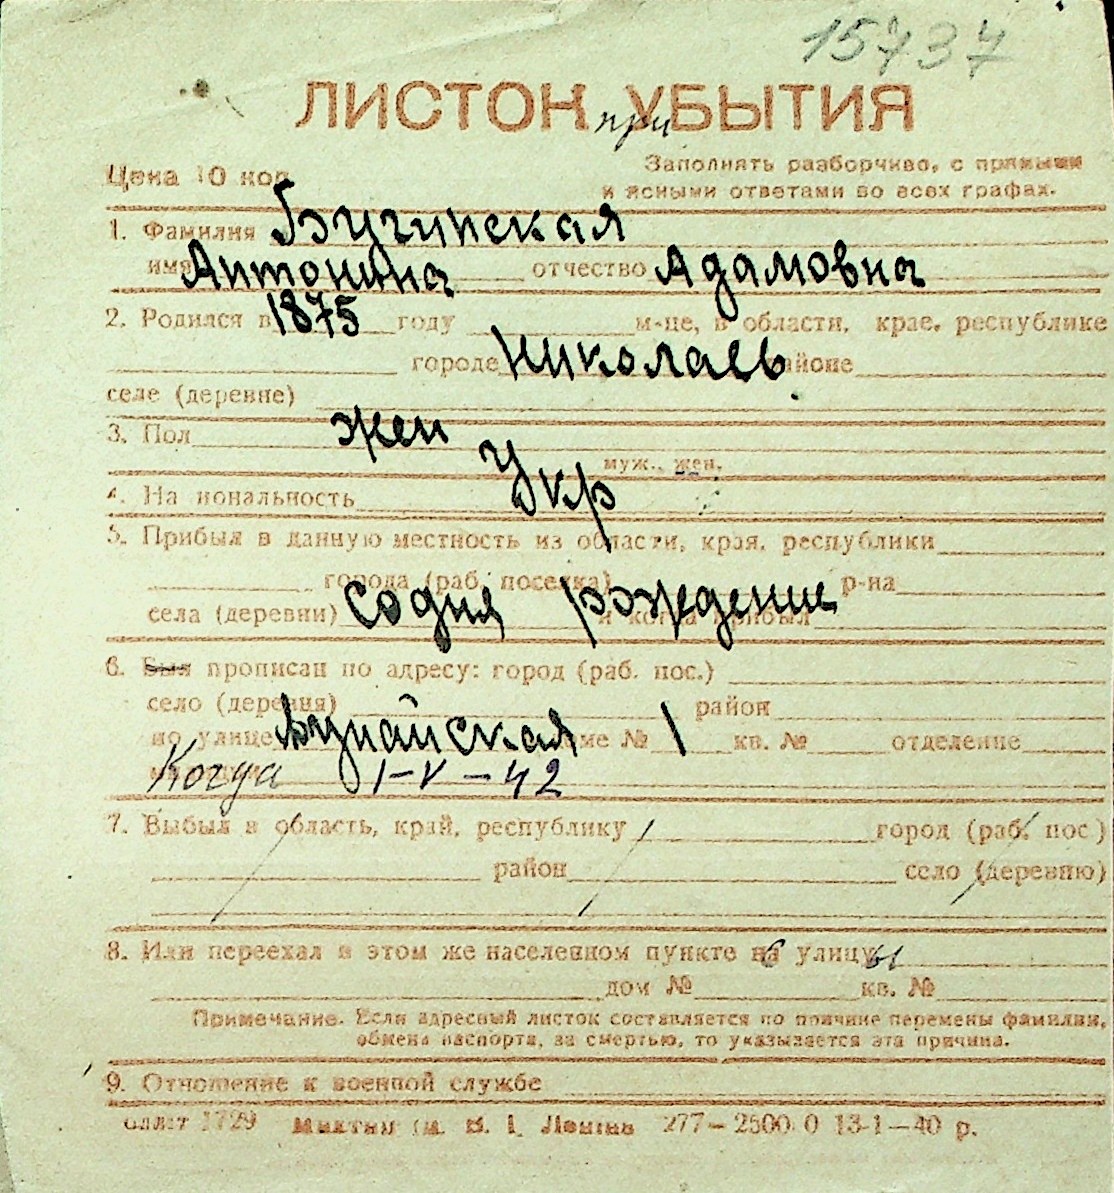 15737
ЛИСТОК при УБЫТИЯ
Цена 10 коп.
Заполнять разборчиво, с прямыми
и ясными ответами во всех графах.
1. Фамилия Бугинская
имя Антонина отчество Адамовна
2. Родился в 1875 году м-це, в области, крае, республике
городе Николаев районе
селе (деревне)
3. Пол жен
муж., жен.
4. Национальность Укр
5. Прибыл в данную местность из области, края, республики
города (раб. поселка) р-на
села (деревни) со дня рождение и когда прибыл
6. Был прописан по адресу: город (раб. пос.)
село (деревня) район
по улице Дунайская доме № 1 кв. № отделение
Когда 1-V-42
7. Выбыл в область, край, республику город (раб. пос)
район село (деревню)
8. Или переехал в этом же населенном пункте на улицу
дом № кв. №
Примечание. Если адресный листок составляется по причине перемены фамилии,
обмена паспорта, за смертью, то указывается эта причина.
9. Отношение к военной службе
1729 им. В. І. Леніна 277—25000 13-1—40 р.